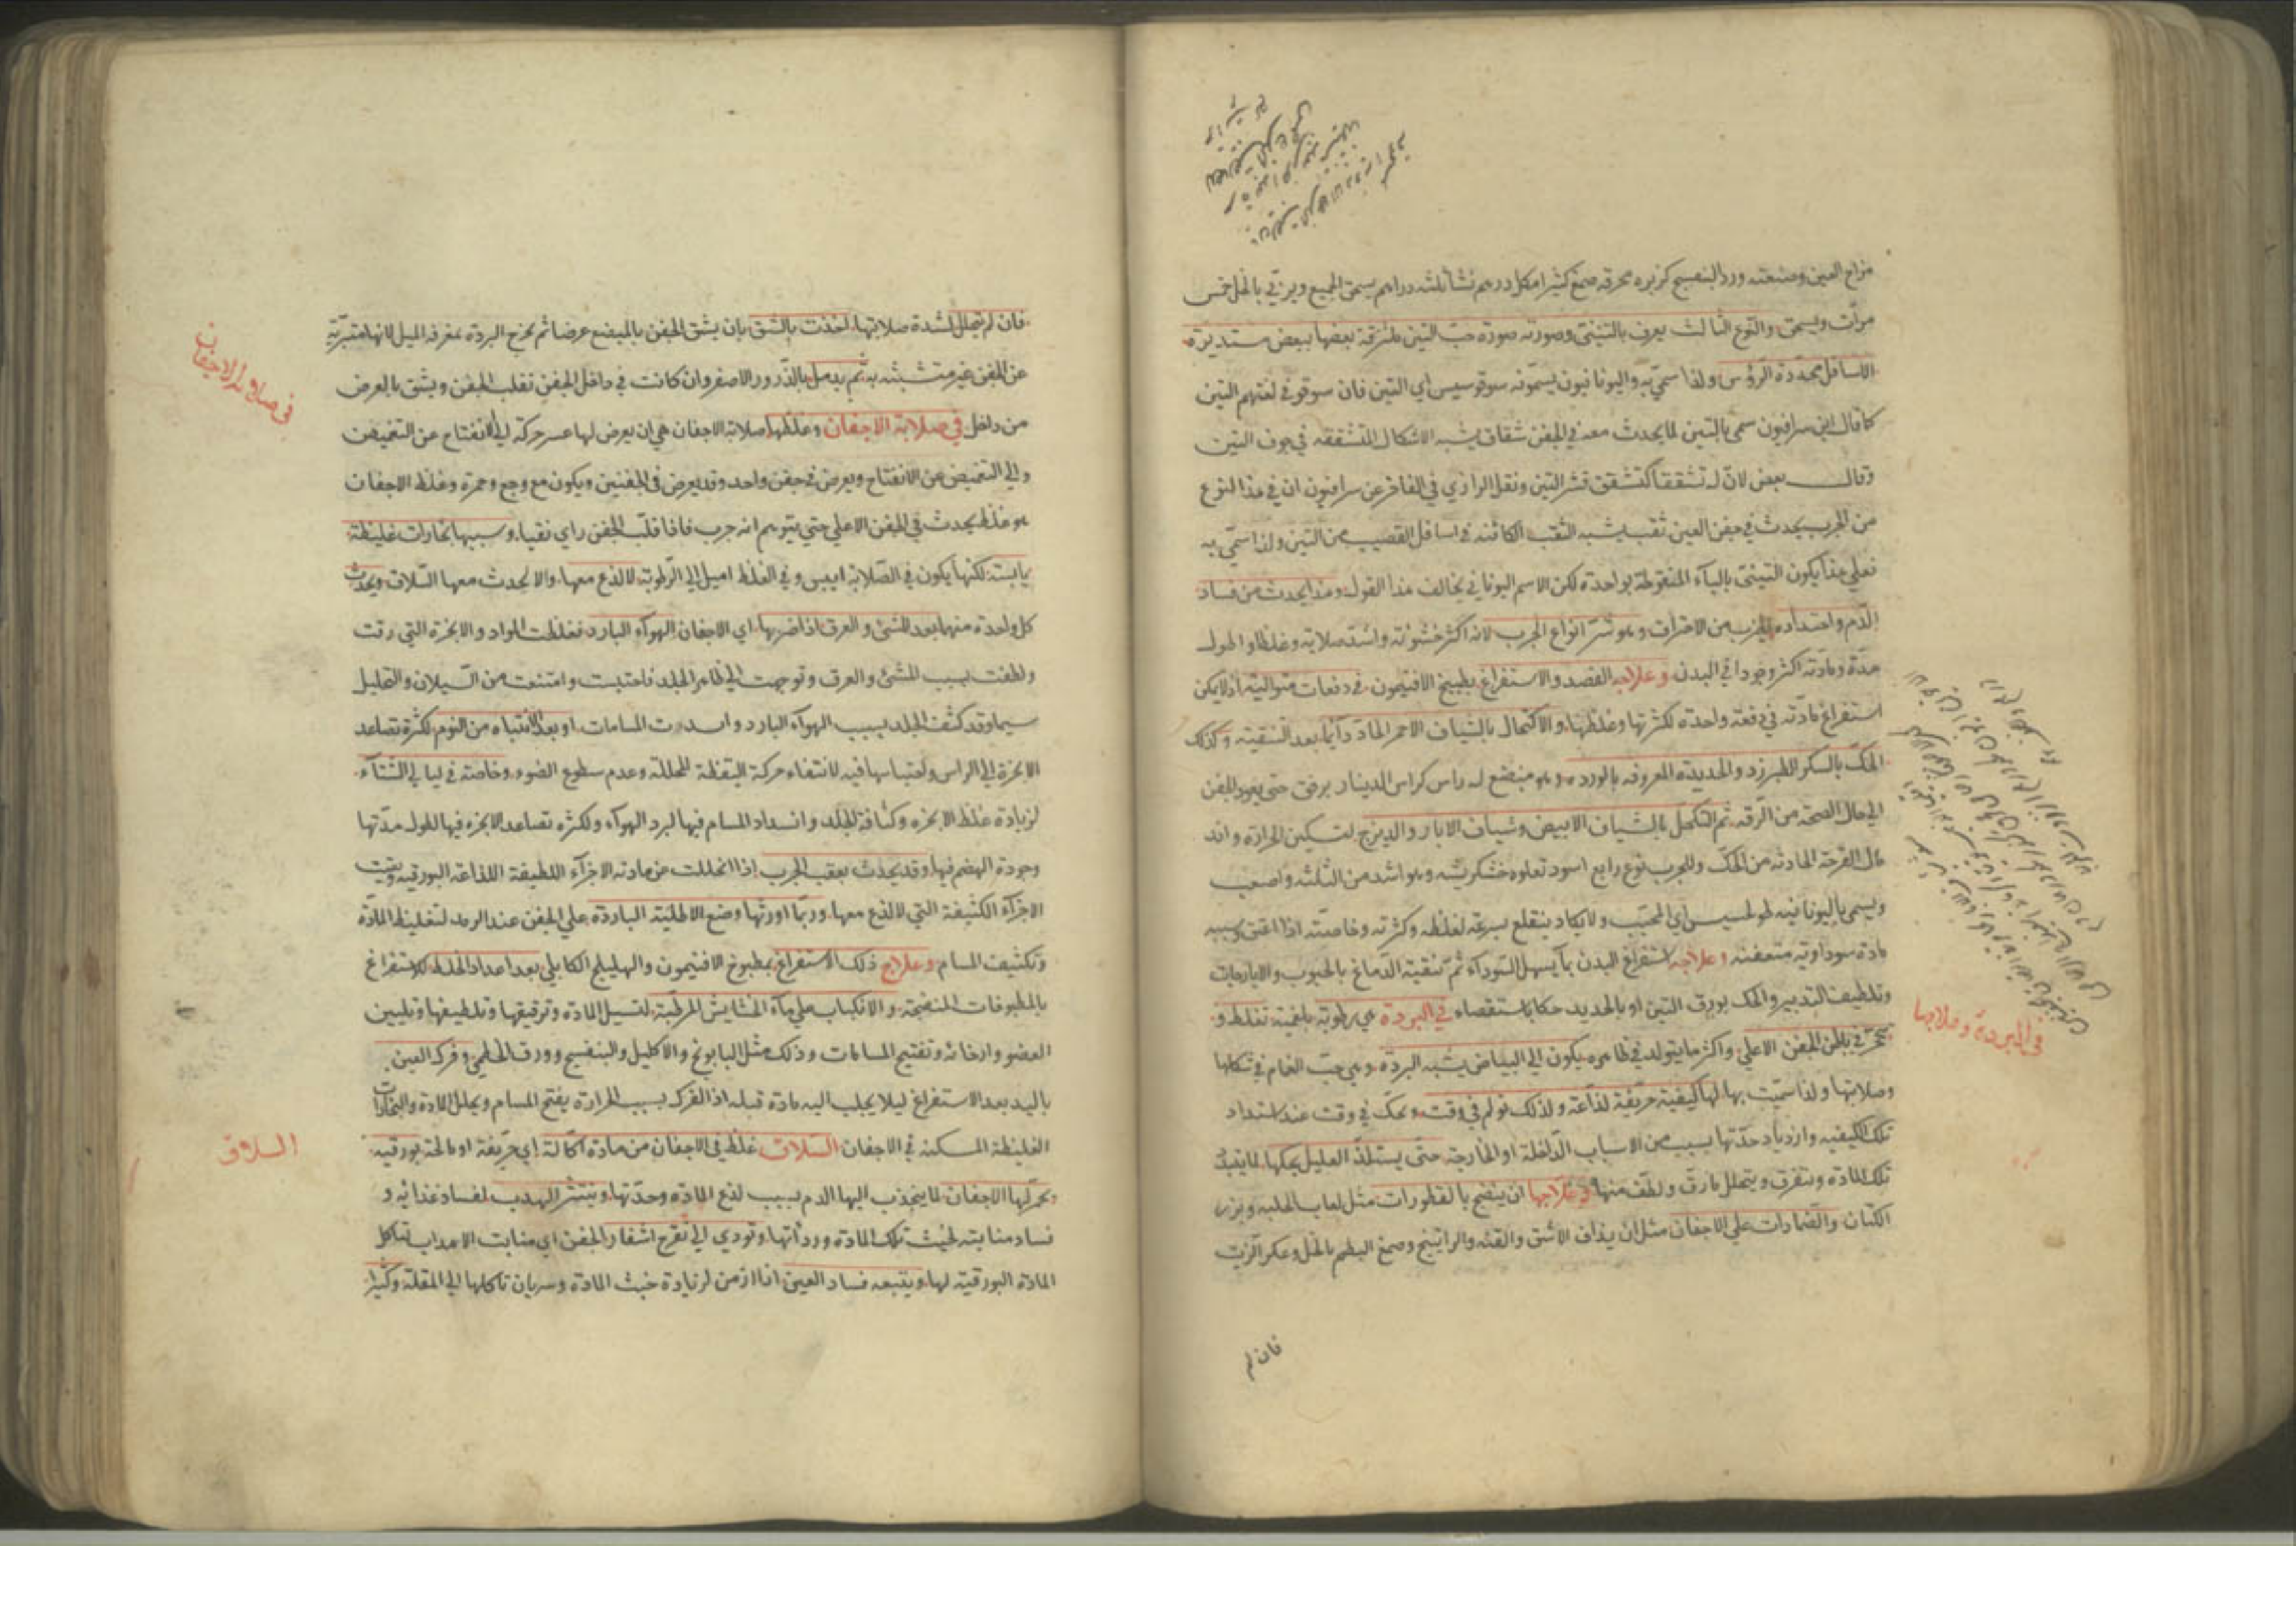 مزاج العين وصنعته ورد البنفسج كزبره محرقه صمغ كثيرا مكل درهم نشا ثلثه دراهم يسحق الجميع ويربي بالخل خمس
مرات ويسحق والنوع الثالث يعرف بالتيني وصورته صورة حب التين ملتزقة بعضها ببعض مستديرة
الاسافل محددة الرؤس ولذا سمي به واليونانيون يسمونه سوقوسيس اي التين فان سوقو في لغتهم التين
كما قال ابن سرافيون سمي بالتين لما يحدث معه في الجفن شقاق يشبه الاشكال المتشققه في جوف التين
وقال بعض لان له تشققا كتشقق قشر التين ونقل الرازي في الفاخر عن سرافيون ان في هذا النوع
من الجرب يحدث في جفن العين ثقب يشبه الثقب الكائنه في اسافل القصيب من التين ولذا سمي به
فعلي هذا يكون التيني بالياء المنقوطة بواحدة لكن الاسم اليوناني يخالف هذا القول وهذا يحدث من فساد
الدم واحتداده لقرب من الاحتراق وهو شر انواع الجرب لانه اكثر خشونه واشد صلابة وغلظا واطول
مدة ومادته اكثر وجودا في البدن وعلاجه الفصد والاستفراغ بطبيخ الافتيمون في دفعات متوالية اذ لا يمكن
استفراغ مادته في دفعة واحدة لكثرتها وغلظها والاكتحال بالشياف الاحمر الحاد دائما بعد التنقية وكذلك
الحك بالسكر الطبرزد والحديدة المعروفه بالورده وهو مبضع له راس كراس الدينار برفق حتي يعود الجفن
الي حال الصحة من الرقه ثم التكحل بالشياف الابيض وشياف الابار والديزج لتسكين الحرارة واند
مال القرحة الحادثه من الحك وللجرب نوع رابع اسود تعلوه خشكريشه وهو اشد من الثلثه واصعب
ويسمي باليونانيه اي المحبب ولا يكاد ينقلع بسرعة لغلظه وكثرته وخاصة اذا عتق وسببه
مادة سوداوية متعفنه وعلاجه استفراغ البدن بما يسهل السوداء ثم تنقية الدماغ بالحبوب والايارجات
وتلطيف التدبير والحك بورق التين او بالحديد حكا باستقصاء في البردة هي رطوبة بلغمية تغلظ و
تتحجر في باطن الجفن الاعلي واكثر ما يتولد في ظاهره يكون الي البياض يشبه البردة وهي حب الغمام في شكلها
وصلابتها ولذا سميت بها لها كيفية حريفة لذاعة ولذلك تولم في وقت وتحك في وقت عند اشتداد
تلك الكيفيه وازدياد حدتها بسبب من الاسباب الداخلة او الخارجة حتي يستلذ العليل بحكها لما
تلك المادة وتتفرق ويتحلل ما رق ولطف منها وعلاجها ان ينضج بالقطورات مثل لعاب الحلبه وبزر
الكتان والضمادات علي الاجفان مثل ان يذاف الاشق والقنه والراتينج وصمغ البطم بالخل وعكر الزيت
فان لم
في البردة وعلاجها
فان لم يتحلل لشدة صلابتها اخذت بالشق بان يشق الجفن بالمبضع عرضا ثم يخرج البردة بمغرفة الميل لانها متبرية
عن الجفن غير متشبثه به ثم يدمل بالذرور الاصفر وان كانت في داخل الجفن نقلب الجفن ويشق بالعرض
من داخل في صلابة الاجفان وغلظها صلابة الاجفان هي ان يعرض لها عسر حركة الي الانفتاح عن التغميض
والي التغميض عن الانفتاح ويعرض في جفن واحد وقد يعرض في الجفنين ويكون مع وجع وحمرة وغلظ الاجفان
هو غلظ يحدث في الجفن الاعلي حتي يتوهم انه جرب فاذا قلب الجفن راي نقيا وسببها بخارات غليظة
يابسة لكنها يكون في الصلابة ايبس وفي الغلظ اميل الي الرطوبة لا لذع معها والا لحدث معها السلاق ويحدث
كل واحدة منهما بعد المشي والعرق اذا ضربها اي الاجفان الهواء البارد فغلظت المواد والابخرة التي رقت
ولطفت بسبب المشي والعرق وتوجهت الي ظاهر الجلد فاحتبست وامتنعت من السيلان والتحليل
سيما وقد كثف الجلد بسبب الهواء البارد وانسدت المسامات او بعد الانتباه من النوم لكثرة تصاعد
الابخرة الي الراس واحتباسها فيه لانتفاء حركة اليقظة المحللة وعدم سطوع الضوء وخاصة في ليالي الشتاء
لزيادة غلظ الابخره وكثافة الجلد وانسداد المسام فيها لبرد الهواء ولكثره تصاعد الابخره فيها لطول مدتها
وجودة الهضم فيها وقد يحدث بعقب الجرب اذا انحللت عن مادته الاجزاء اللطيفة اللذاعة البورقيه وبقيت
الاجزاء الكثيفة التي لا لذع معها وربما اورثها وضع الاطلية الباردة علي الجفن عند الرمد لتغليظ المادة
وتكثيف المسام وعلاج ذلك الاستفراغ بمطبوخ الافتيمون والهليلج الكابلي بعد اعداد الخلط للاستفراغ
بالمطبوخات المنضجة والانكباب علي ماء الحشايش المرطبة لتسيل المادة وترقيقها وتلطيفها وتليين
العضو وارخائه وتفتيح المسامات وذلك مثل البابونج والاكليل والبنفسج وورق الخطمي وفرك العين
باليد بعد الاستفراغ ليلا يجلب اليه مادة قبله اذ الفرك بسبب الحرارة يفتح المسام ويحلل المادة والبخارات
الغليظة المسكنه في الاجفان السلاق غلظ في الاجفان من مادة اكالة اي حريفة او مالحة بورقيه
تحمر لها الاجفان لما ينجذب اليها الدم بسبب لذع المادة وحدتها وينتثر الهدب لفساد غذائه و
فساد منابته لخبث تلك المادة ورداتها وتودي الي تقرح اشفار الجفن اي منابت الاهداب لتاكل
المادة البورقية لها ويتبعه فساد العين اذا ازمن لزيادة خبث المادة وسريان تاكلها الي المقلة وكثيرا
في صلابة الاجفان
السلاق